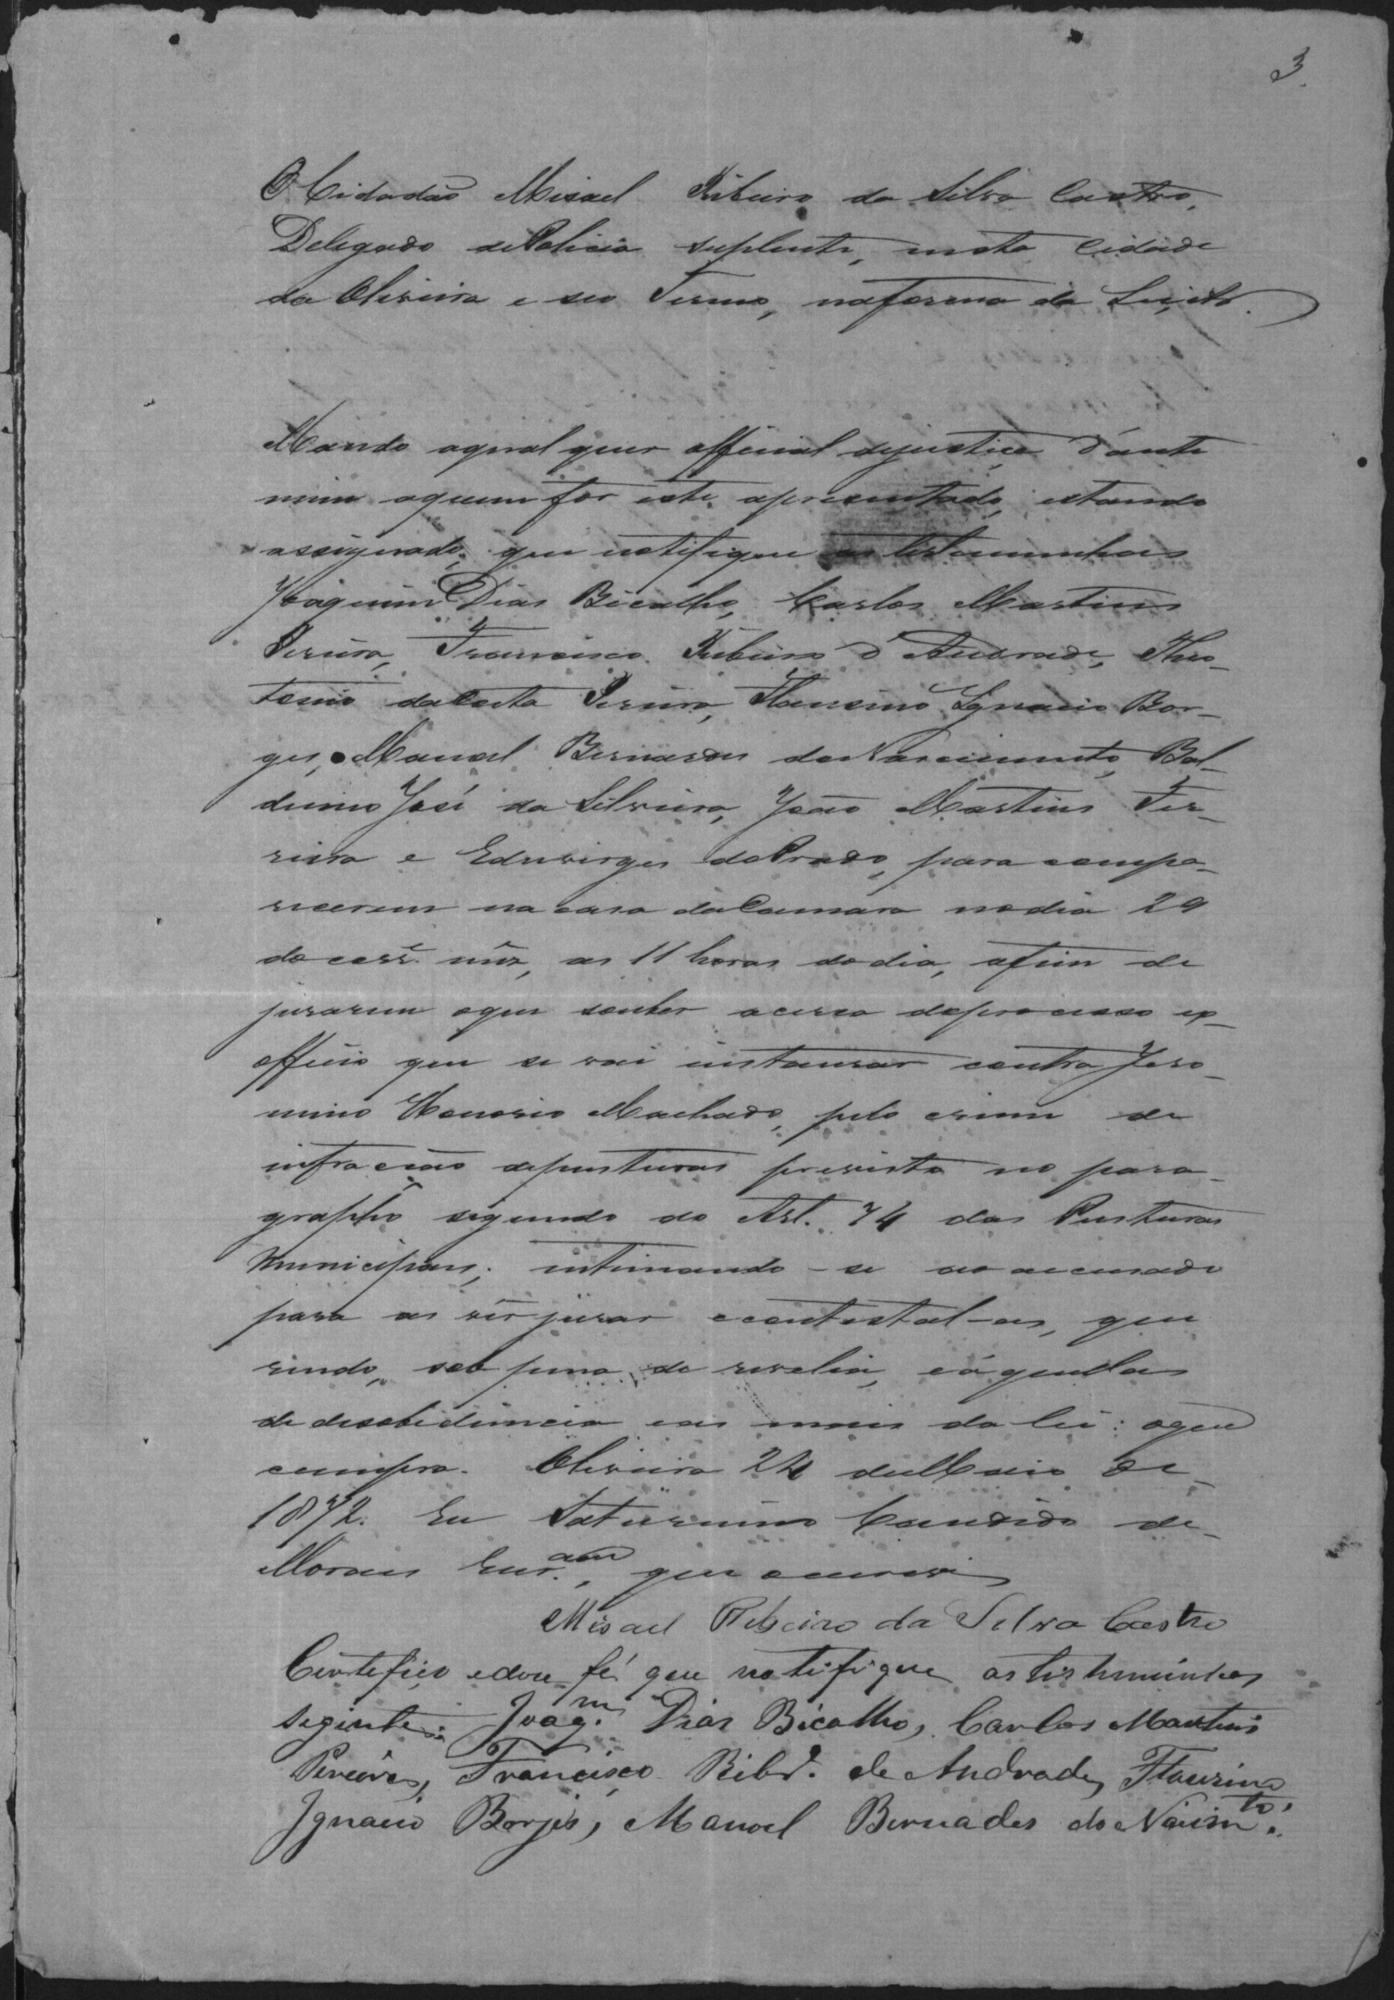 3.
O Cidadão Misael Ribeiro da Silva Castro,
Delegado de Policia suplente, nesta Cidade
da Oliveira e seo Termo, na forma da Lei, etc.
Mando aqualquer official dejustiça d'ante
mim aquem for este apresentado, estando
assignado, que notifique as testemunhas
Joaquim Dias Bicalho, Carlos Martins
Pereira, Francisco Ribeiro d'Andrade, Theo-
tonio da Costa Pereira, Flausino Ignacio Bor-
ges, Manoel Bernardes do Nascimento, Bal-
duino José da Silveira, João Martins Fer-
reira e Eduvirges do Prado, para compa-
recerem na casa da Camara no dia 29
do corr.e mez, as 11 horas do dia, afim de
jurarem oque souber acerca do processo ex-
officio que se vai instaurar contra Jero-
nimo Honorio Machado, pelo crime de
infracção deposturas previsto no para-
grapho segundo do Art. 74 das Posturas
Municipaes; intimando-se ao accusado
para as vêr jurar e contestal-as, que
rendo, sob pena de revelia, e áquellas
de desobidiencia e as mais da lei: oque
cumpra. Oliveira 24 de Maio de
1872. Eu Saturnino Candido de
Moraes Escr.am, que o escrevi
Misael Ribeiro da Silva Castro
Certefico edou fé que notifique as testemunhas
seginte: Joaq.m Dias Bicalho, Carlos Martins
Pereira, Francisco Ribr.o de Andrade, Flausino
Ignacio Borjes, Manoel Bernades do Nacim.to